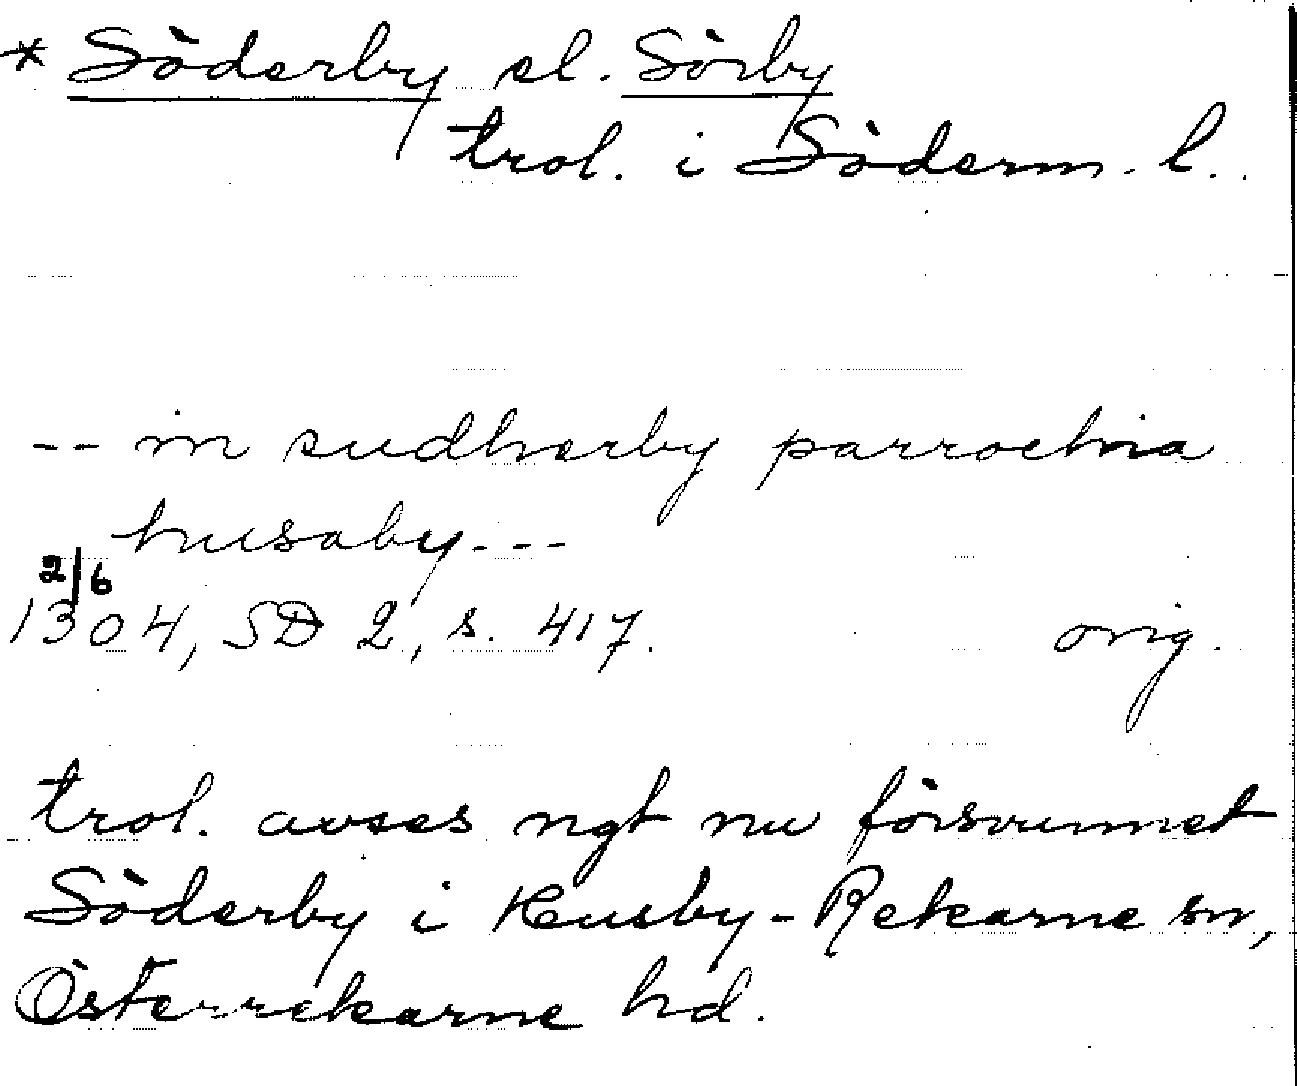 * Söderby el. Sörby
trol. i Söderm. l.
-- in sudherby parrochia
husaby ---
2/6
1304, SD 2, s. 417. orig.
trol. avses ngt nu försvunnet
Söderby i Husby-Rekarne sn,
Österrekarne hd.